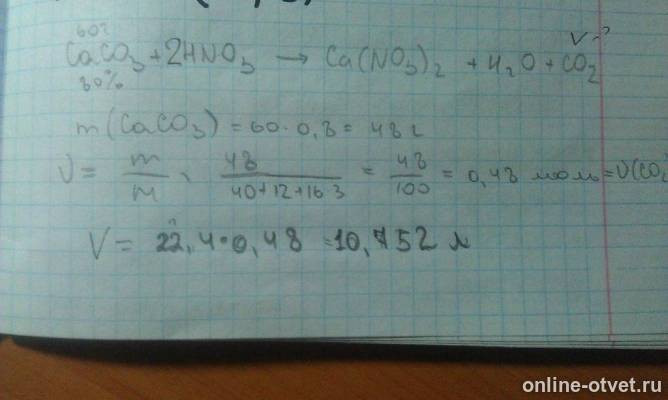 60г V-?
CaCO3 + 2HNO3 → Ca(NO3)2 + H2O + CO2
80%
m(CaCO3) = 60·0,8 = 48 г
ν = m/M, 48/(40+12+16·3) = 48/100 = 0,48 моль = ν(CO2
V = 22,4·0,48 = 10,752 л
online-otvet.ru